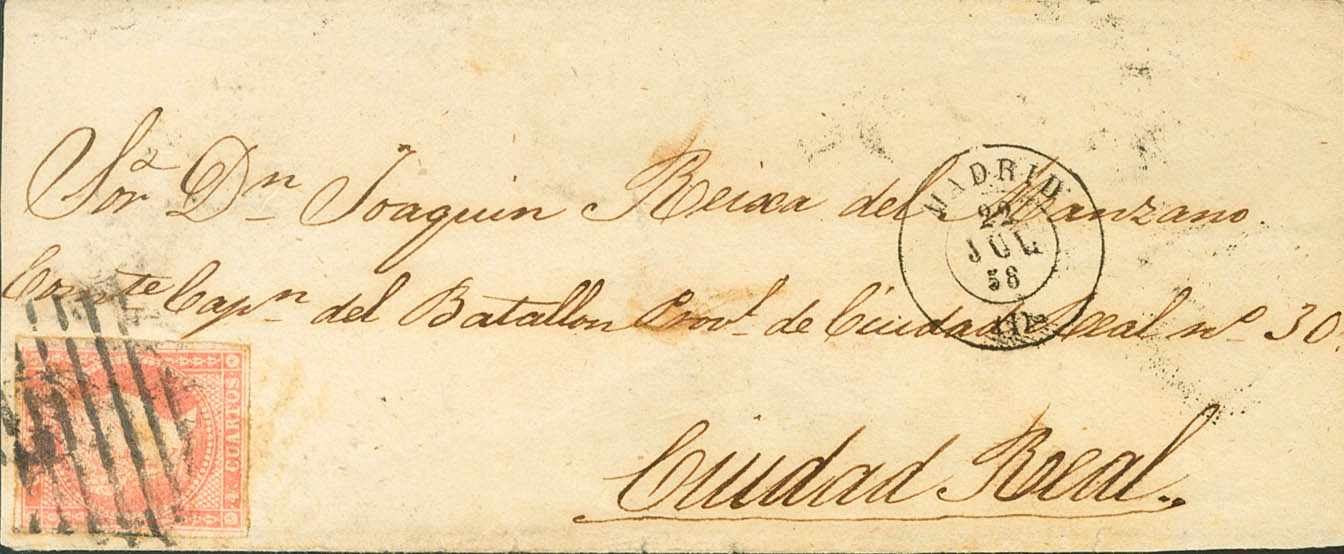 Sor. Dn. Joaquin Reixa del Manzano.
Comte Capn. del Batallon Provl. de Ciudad Real nº 30.
Ciudad Real.
MADRID
22
JUL
58
4 CUARTOS